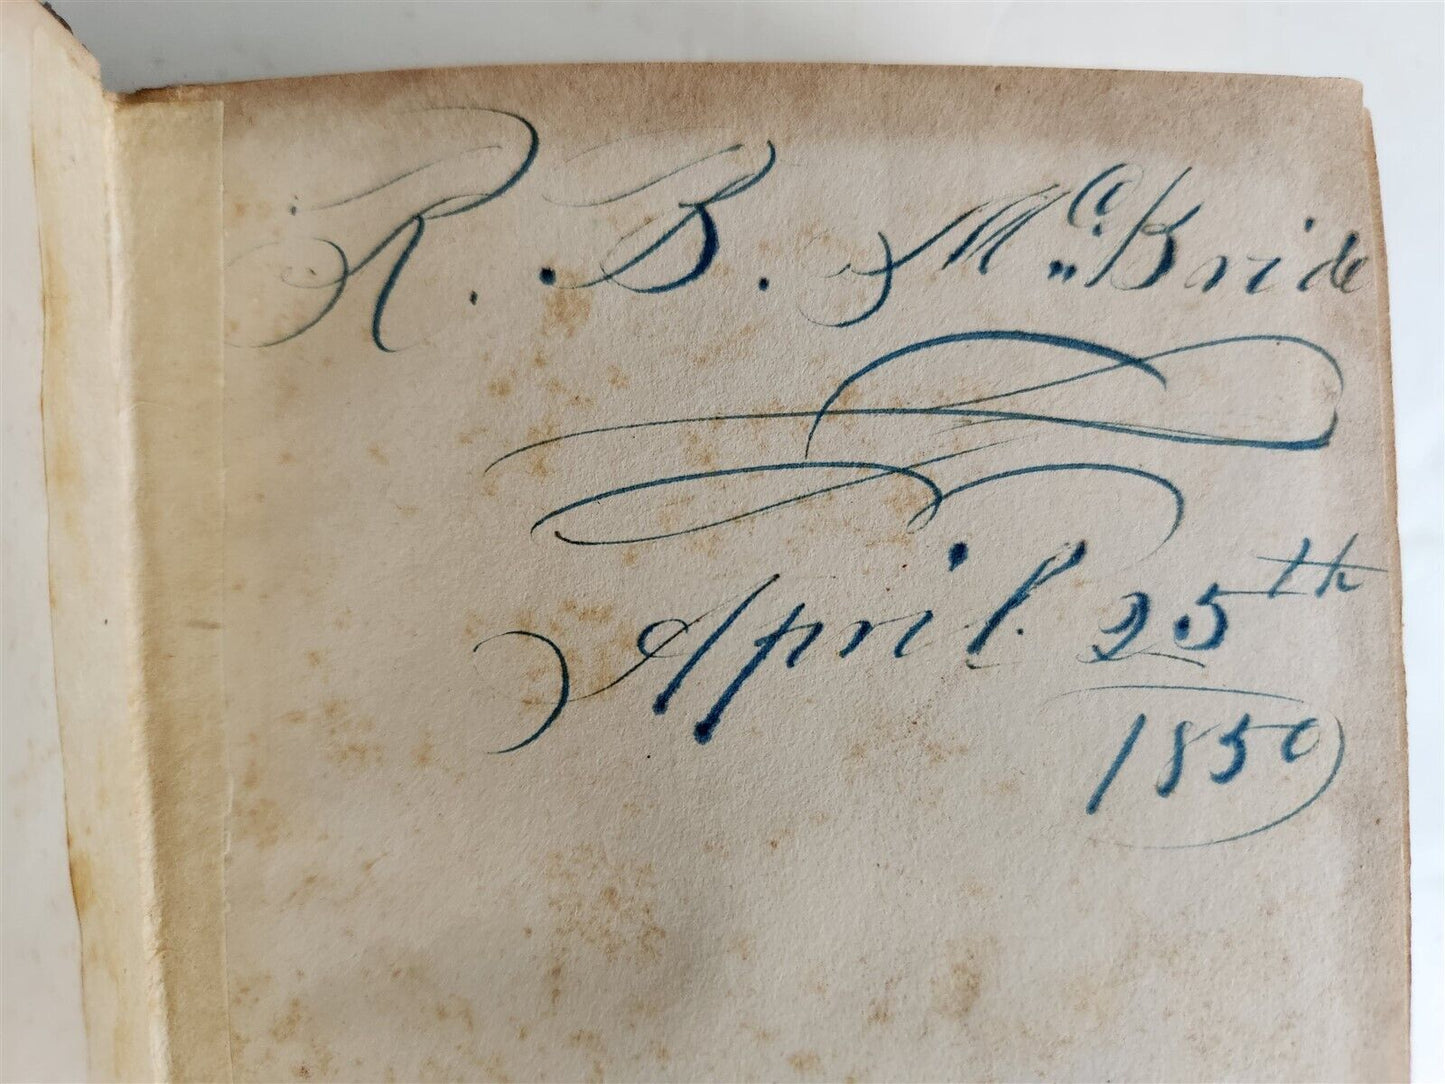 R. B. McBride
April 25th
1850